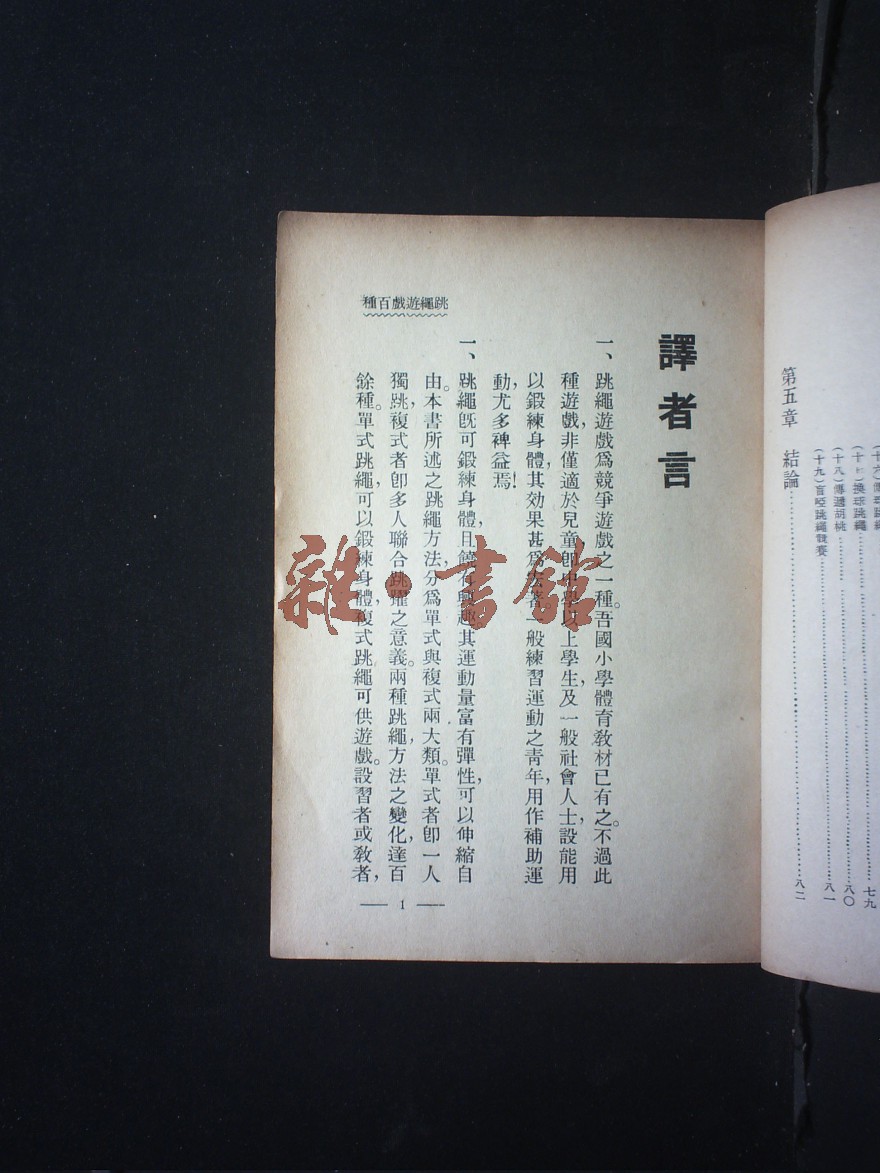 第五章　結論……………………八二
(十七)換球跳繩……………………七九
(十八)傳遞胡桃……………………八〇
(十九)盲啞跳繩競賽……………………八一
跳繩遊戲百種
譯者言
一、跳繩遊戲爲競爭遊戲之一種。吾國小學體育教材已有之。不過此
種遊戲，非僅適於兒童，卽中學以上學生，及一般社會人士，設能用
以鍛練身體，其效果甚爲宏著。一般練習運動之靑年，用作補助運
動，尤多裨益焉！
一、跳繩旣可鍛練身體，且饒有興趣，其運動量富有彈性，可以伸縮自
由。本書所述之跳繩方法，分爲單式與複式兩大類。單式者卽一人
獨跳，複式者卽多人聯合跳躍之意義。兩種跳繩方法之變化，達百
餘種。單式跳繩，可以鍛練身體，複式跳繩可供遊戲。設習者或敎者，
1
雜·書館